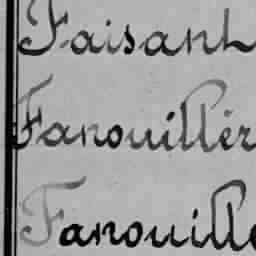 Faisant
Fanouillèr
Fanouille